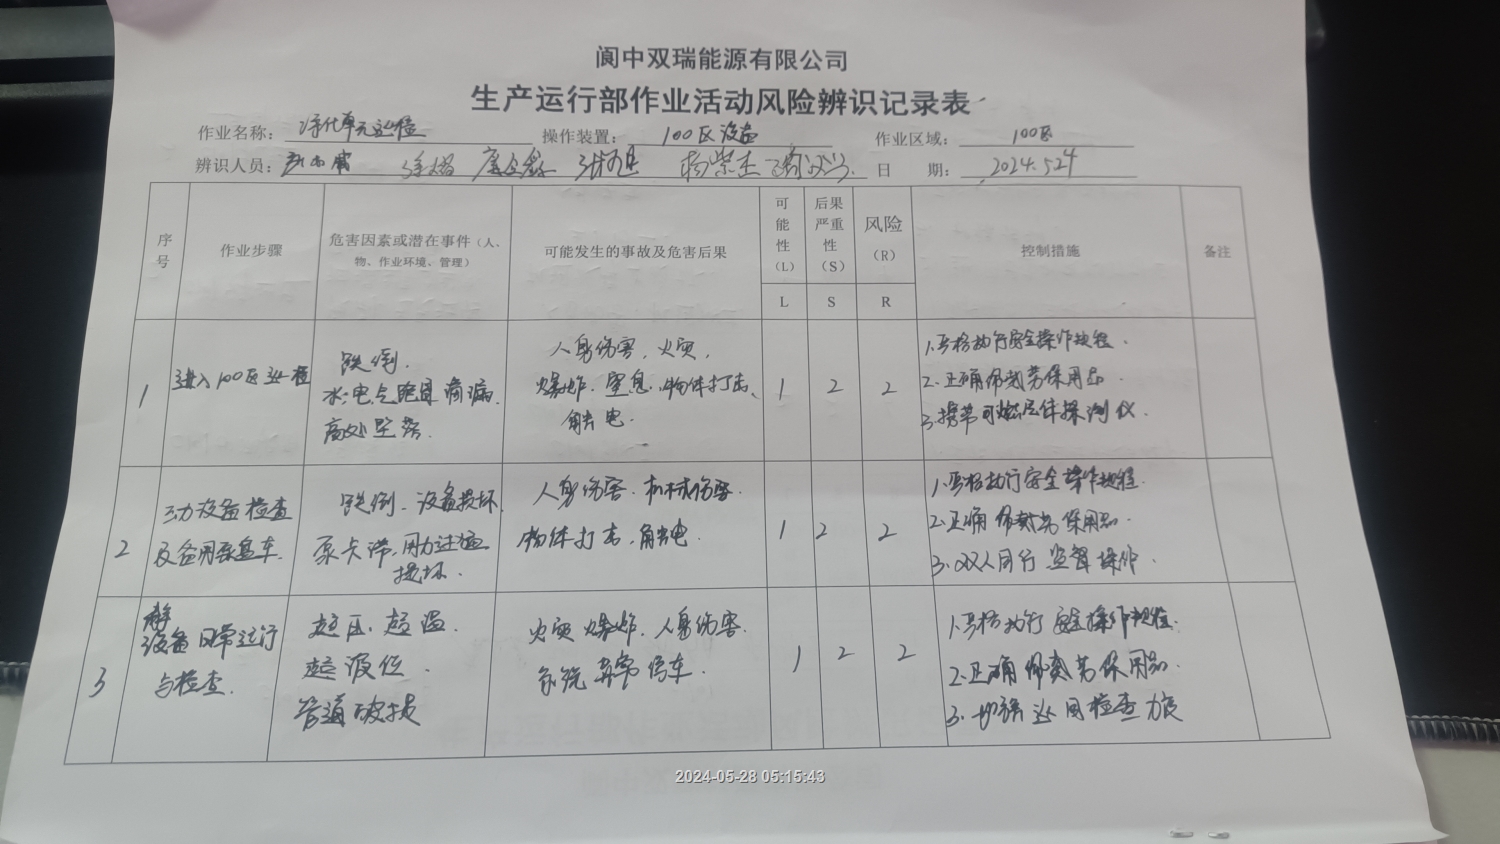 阆中双瑞能源有限公司
生产运行部作业活动风险辨识记录表
作业名称： 净化单元巡检 操作装置： 100区设备 作业区域： 100区
辨识人员： 日 期： 2024.5.24
序号 作业步骤 危害因素或潜在事件（人、物、作业环境、管理） 可能发生的事故及危害后果 可能性（L） 后果严重性（S） 风险（R） 控制措施 备注
L S R
1 进入100区巡检 跌倒. 水.电气跑冒滴漏. 高处坠落. 人身伤害，火灾， 爆炸.窒息.物体打击、 触电. 1 2 2 1.严格执行安全操作规程. 2.正确佩戴劳保用品. 3.携带可燃气体探测仪.
2 动设备检查及备用泵盘车. 跌倒.设备损坏 泵卡滞，用力过猛 损坏. 人身伤害.机械伤害 物体打击，触电 1 2 2 1.严格执行安全操作规程. 2.正确佩戴劳保用品. 3.双人同行监督操作.
3 静设备日常运行与检查. 超压.超温. 超液位. 管道破损 火灾 爆炸.人身伤害. 系统异常停车. 1 2 2 1.严格执行安全操作规程. 2.正确佩戴劳保用品. 3.加强巡回检查力度
2024-05-28 05:15:43